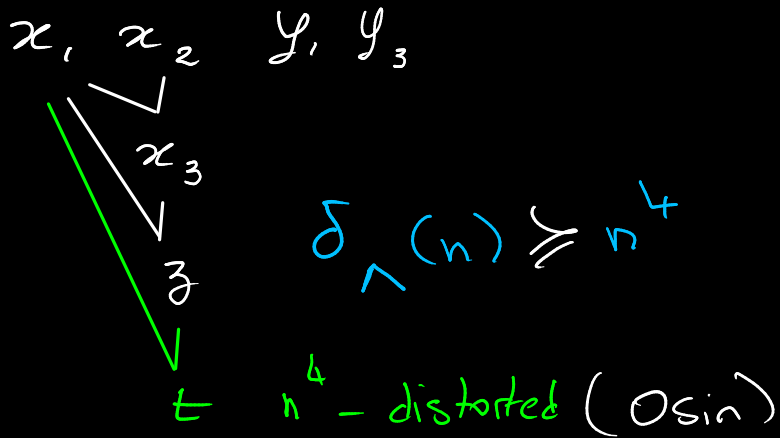 x₁ x₂ y₁ y₃
x₃
δ_Λ(n) ≽ n⁴
z
t n⁴ - distorted (Osin)